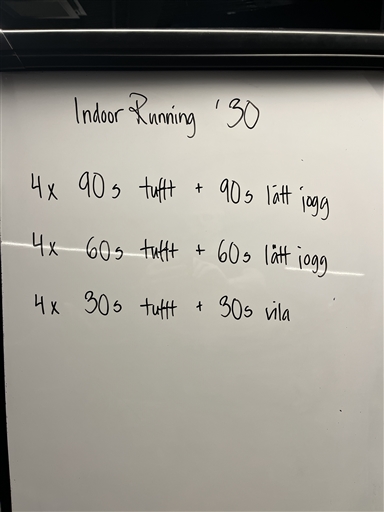 Indoor Running '30
4x 90s tufft + 90s lätt jogg
4x 60s tufft + 60s lätt jogg
4x 30s tufft + 30s vila